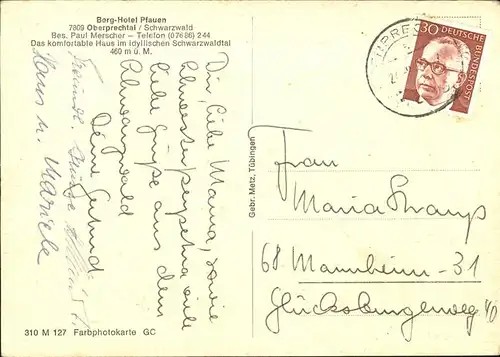 Berg-Hotel Pfauen
7809 Oberprechtal / Schwarzwald
Bes. Paul Merscher – Telefon (0 76 86) 2 44
Das komfortable Haus im idyllischen Schwarzwaldtal
460 m ü. M.
Dir, liebe Mama, sowie
Schwester Perpetua viele
liebe Grüße aus dem
Schwarzwald
Deine Gertrud
Freundl. Grüße
Hans u. Mariele
310 M 127 Farbphotokarte GC
Gebr. Metz, Tübingen
30 DEUTSCHE BUNDESPOST
Frau
Maria Stramp
68 Mannheim-31
Glücksburgerweg 40